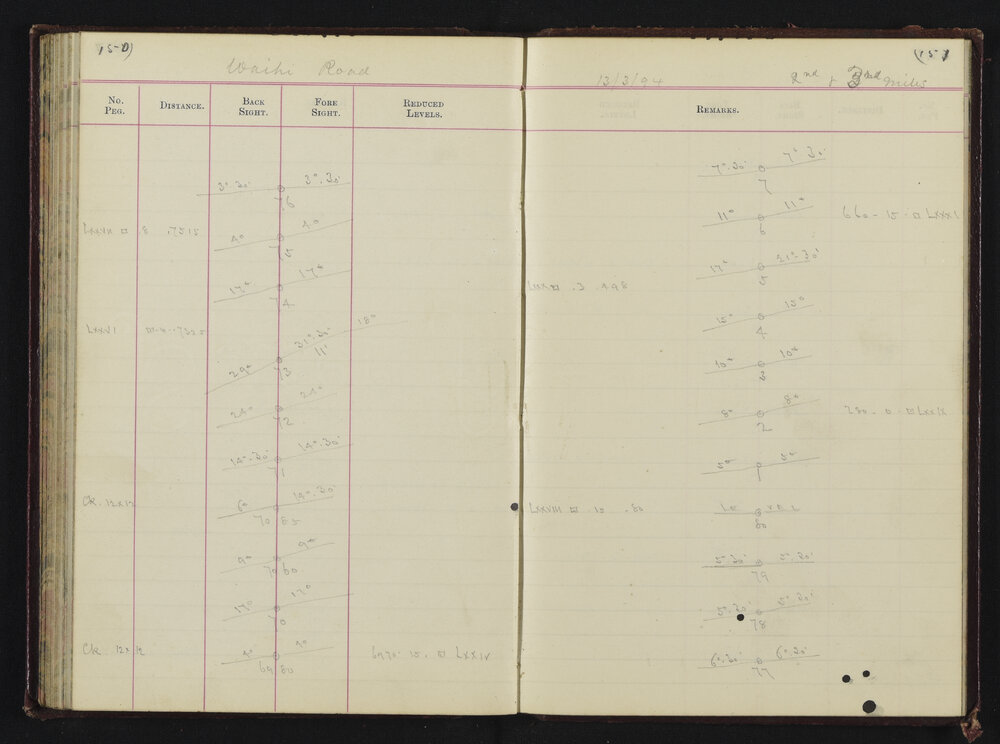 (150)
Waihi Road
No. Peg. Distance. Back Sight. Fore Sight. Reduced Levels.
3°.30' 3°.30'
76
LXXVII □ 8 .7515
4° 4°
75
17° 17°
74
LXXVI
18°
31°.30'
11°
29°
73
24° 24°
72
14°.30' 14°.30'
71
Ck. 12x12
6° 14°.30'
70 85
9° 9°
70 60
17° 17°
70
Ck. 12x12
4° 4°
69 80
6970. 15. □ LXXIV
(151
13/3/94
2nd & 3rd miles
Remarks.
7°.30' 7°.30'
7
11° 11°
6
660 - 15 - □ LXXXI
17° 21°.30'
5
LXXX □ .3 .498
15° 15°
4
10° 10°
3
8° 8°
2
280 - 0 - □ LXXIX
5° 5°
1
LXXVIII □ .15 .80
LE VEL
80
5°.30' 5°.30'
79
5°.30' 5°.30'
78
6°.30' 6°.30'
77